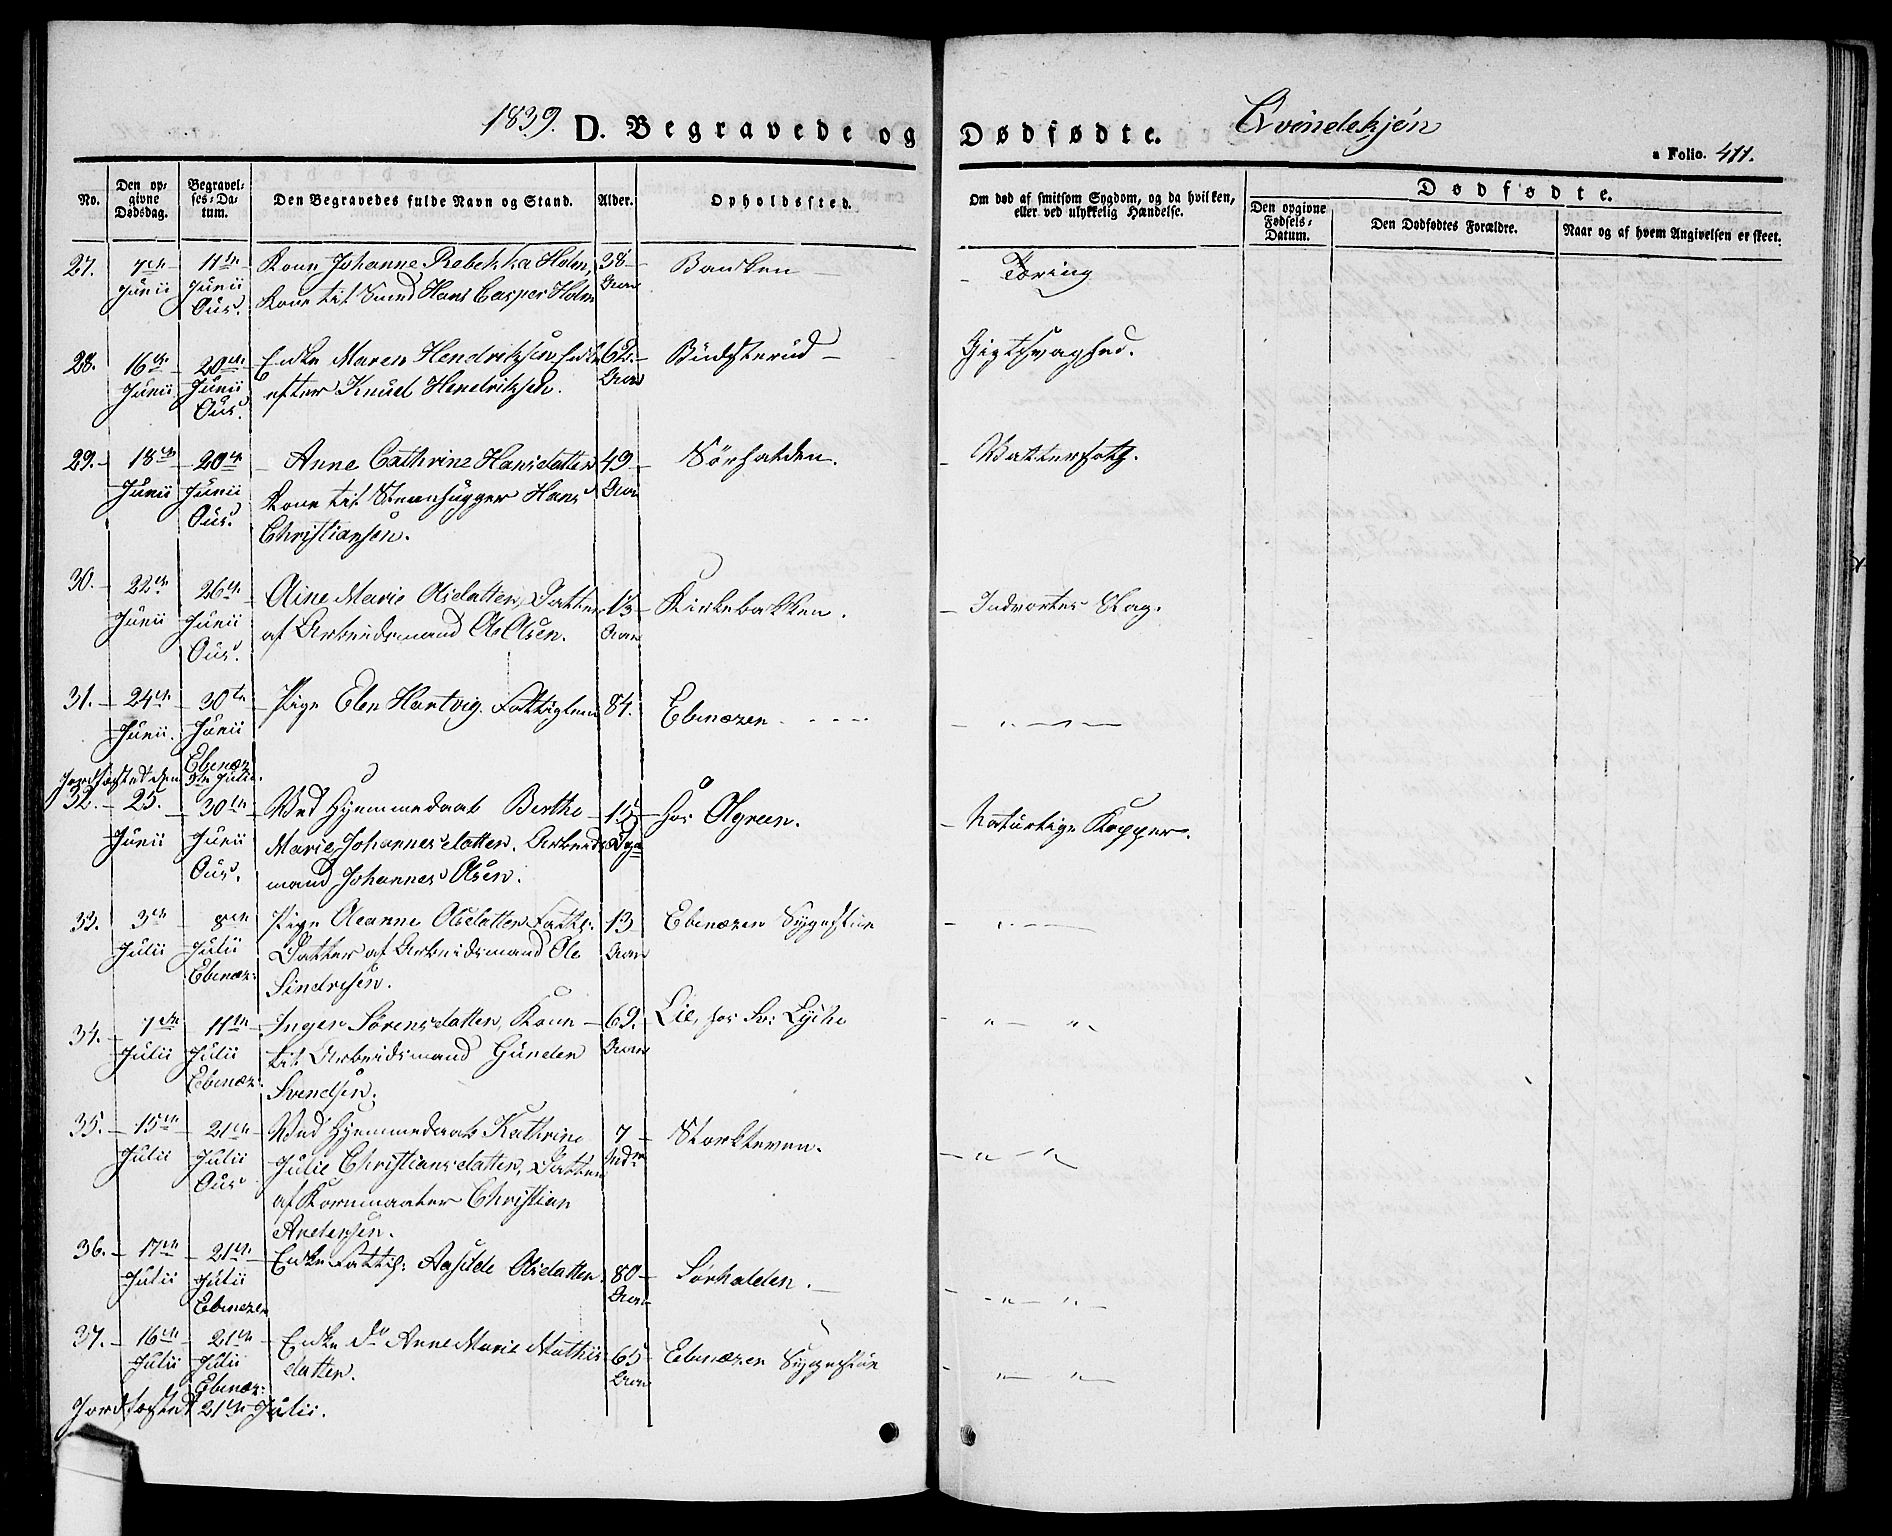 1839. D. Begravede og Dødfødte. Qvindekjön
a Folio. 411.
No. Den opgivne Dødsdag. Begravelses-Datum. Den Begravedes fulde Navn og Stand. Alder. Opholdssted. Om død af smitsom Sygdom, og da hvilken, eller ved ulykkelig Hændelse. Dødfødte.
Den opgivne Fødsels-Datum. Den Dødfødtes Forældre. Naar og af hvem Angivelsen er skeet.
27. 7de 11te Kone Johanne Rebekka Holm, 38 Bakken Tæring
Junii Junii Kone til Smed Hans Casper Holm Aar
Aus.
28. 16de 20de Enke Maren Hendritzsen, Enke 62. Gigtsvaghed.
Junii Junii efter Knud Hendritzsen. Aar
Aus.
29. 18de 20de Anne Cathrine Hansdatter 49 Sørhalden. Vattersoth.
Junii Junii Kone til Steenhugger Hans Aar
Aus. Christiansen.
30. 22de 26de Aine Marie Olsdatter, Datter 13 Kirkebakken. Indvortes Slag.
Junii Junii af Arbeidsmand Ole Olsen. Aar
Aus.
31. 24de 30te Pige Elen Hartvig. Fattiglem 84. Ebenezer
Junii. Junii
Ebenez
Jordfæstet den 3de Julii.
32. 25. 30te Ved Hjemmedaab Berthe 15 hos Olgreen. Naturlige Kopper.
Junii Junii Marie Johannesdatter. Arbeids Dage
Aus. mand Johannes Olsen.
33. 3de 8de Pige Oleanne Olsdatter Fattig: 13 Ebenezer Sygestue
Julii Julii Datter af Arbeidsmand Ole Aar
Ebenez: Sindresen.
34. 7de 11te Inger Sörensdatter, Kone 69. Lie, hos Sv: Lyche
Julii Julii til Arbeidsmand Gunder Aar
Ebenez: Svendsen.
35. 15de 21de Ved Hjemmedaab Kathrine 7
Julii Julii Julie Christiansdatter, Datter
Aus af Kornmaaler Christian
Andersen.
36. 17de 21de Enke Fattig: Aasilde Olsdatter. 80 Sørhalden.
Julii Julii Aar
Ebenezer
37. 16de 21de Enke do Anne Marie Mathis 65 Ebenezer Sygestue
Julii Julii datter. Aar
Ebenez:
Jordfæstet 21de Julii.